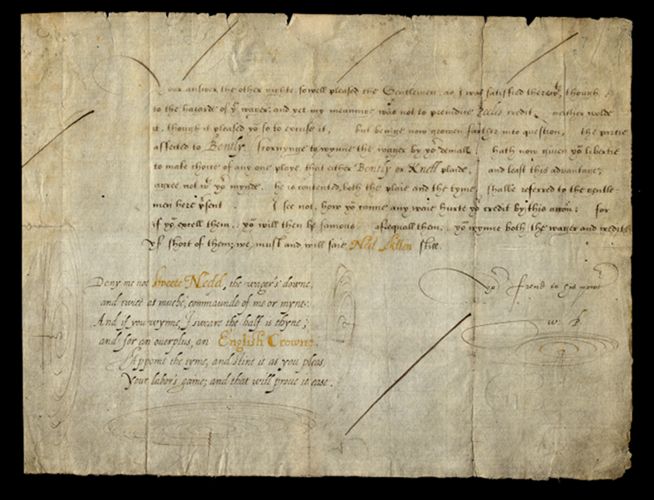 Your answer the other nighte, so well pleased the Gentlemen, as I was satisfied therewth, though
to the hazarde of ye wager; and yet my meaninge was not to preiudice Peeles credit; neither wolde
it, though it pleased yo so to excuse it, but beinge now growen farther into question, the partie
affected to Bently, scornynge to wynne the wager by yor deniall, hath now given yo libertie
to make choice of any one playe, that either Bently or Knell plaide, and least this advantage,
agree not wth yor mynde, he is contented, both the plaie and the tyme, shalbe referred to the gentle-
men here prsent. I see not, how yo canne any waie hurte yor credit by this action; for
if yo excell them, yo will then be famous, if equall them, yo wynne both the wager and credit,
yf short of them; we must and will saie Ned Allen still.
yor frend to his power
W. P.
Deny me not sweete Nedd, the wager's downe,
and twice as muche, commaunde of me or myne:
And if you wynne I sweare the half is thyne;
and for an overplus, an English Crowne.
Appoint the tyme, and stint it as you pleas,
Your labor's gaine; and that will prove it ease.